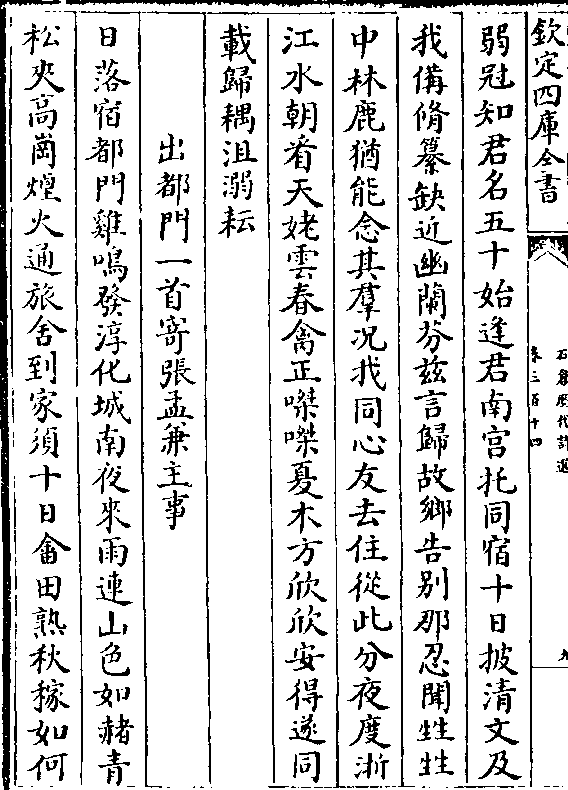 欽定四庫全書
石倉歷代詩選
卷三百十四
九
弱冠知君名五十始逢君南宫托同宿十日披清文及
我備脩纂缺近幽蘭芬兹言歸故鄉告别那忍聞甡甡
中林鹿猶能念其羣况我同心友去住從此分夜度浙
江水朝看天姥雲春禽正嘄嘄夏木方欣欣安得遂同
載歸耦沮溺耘
出都門一首寄張孟兼主事
日落宿都門雞鳴發淳化城南夜來雨連山色如赭青
松夾高崗煌火通旅舍到家須十日畬田熟秋稼如何